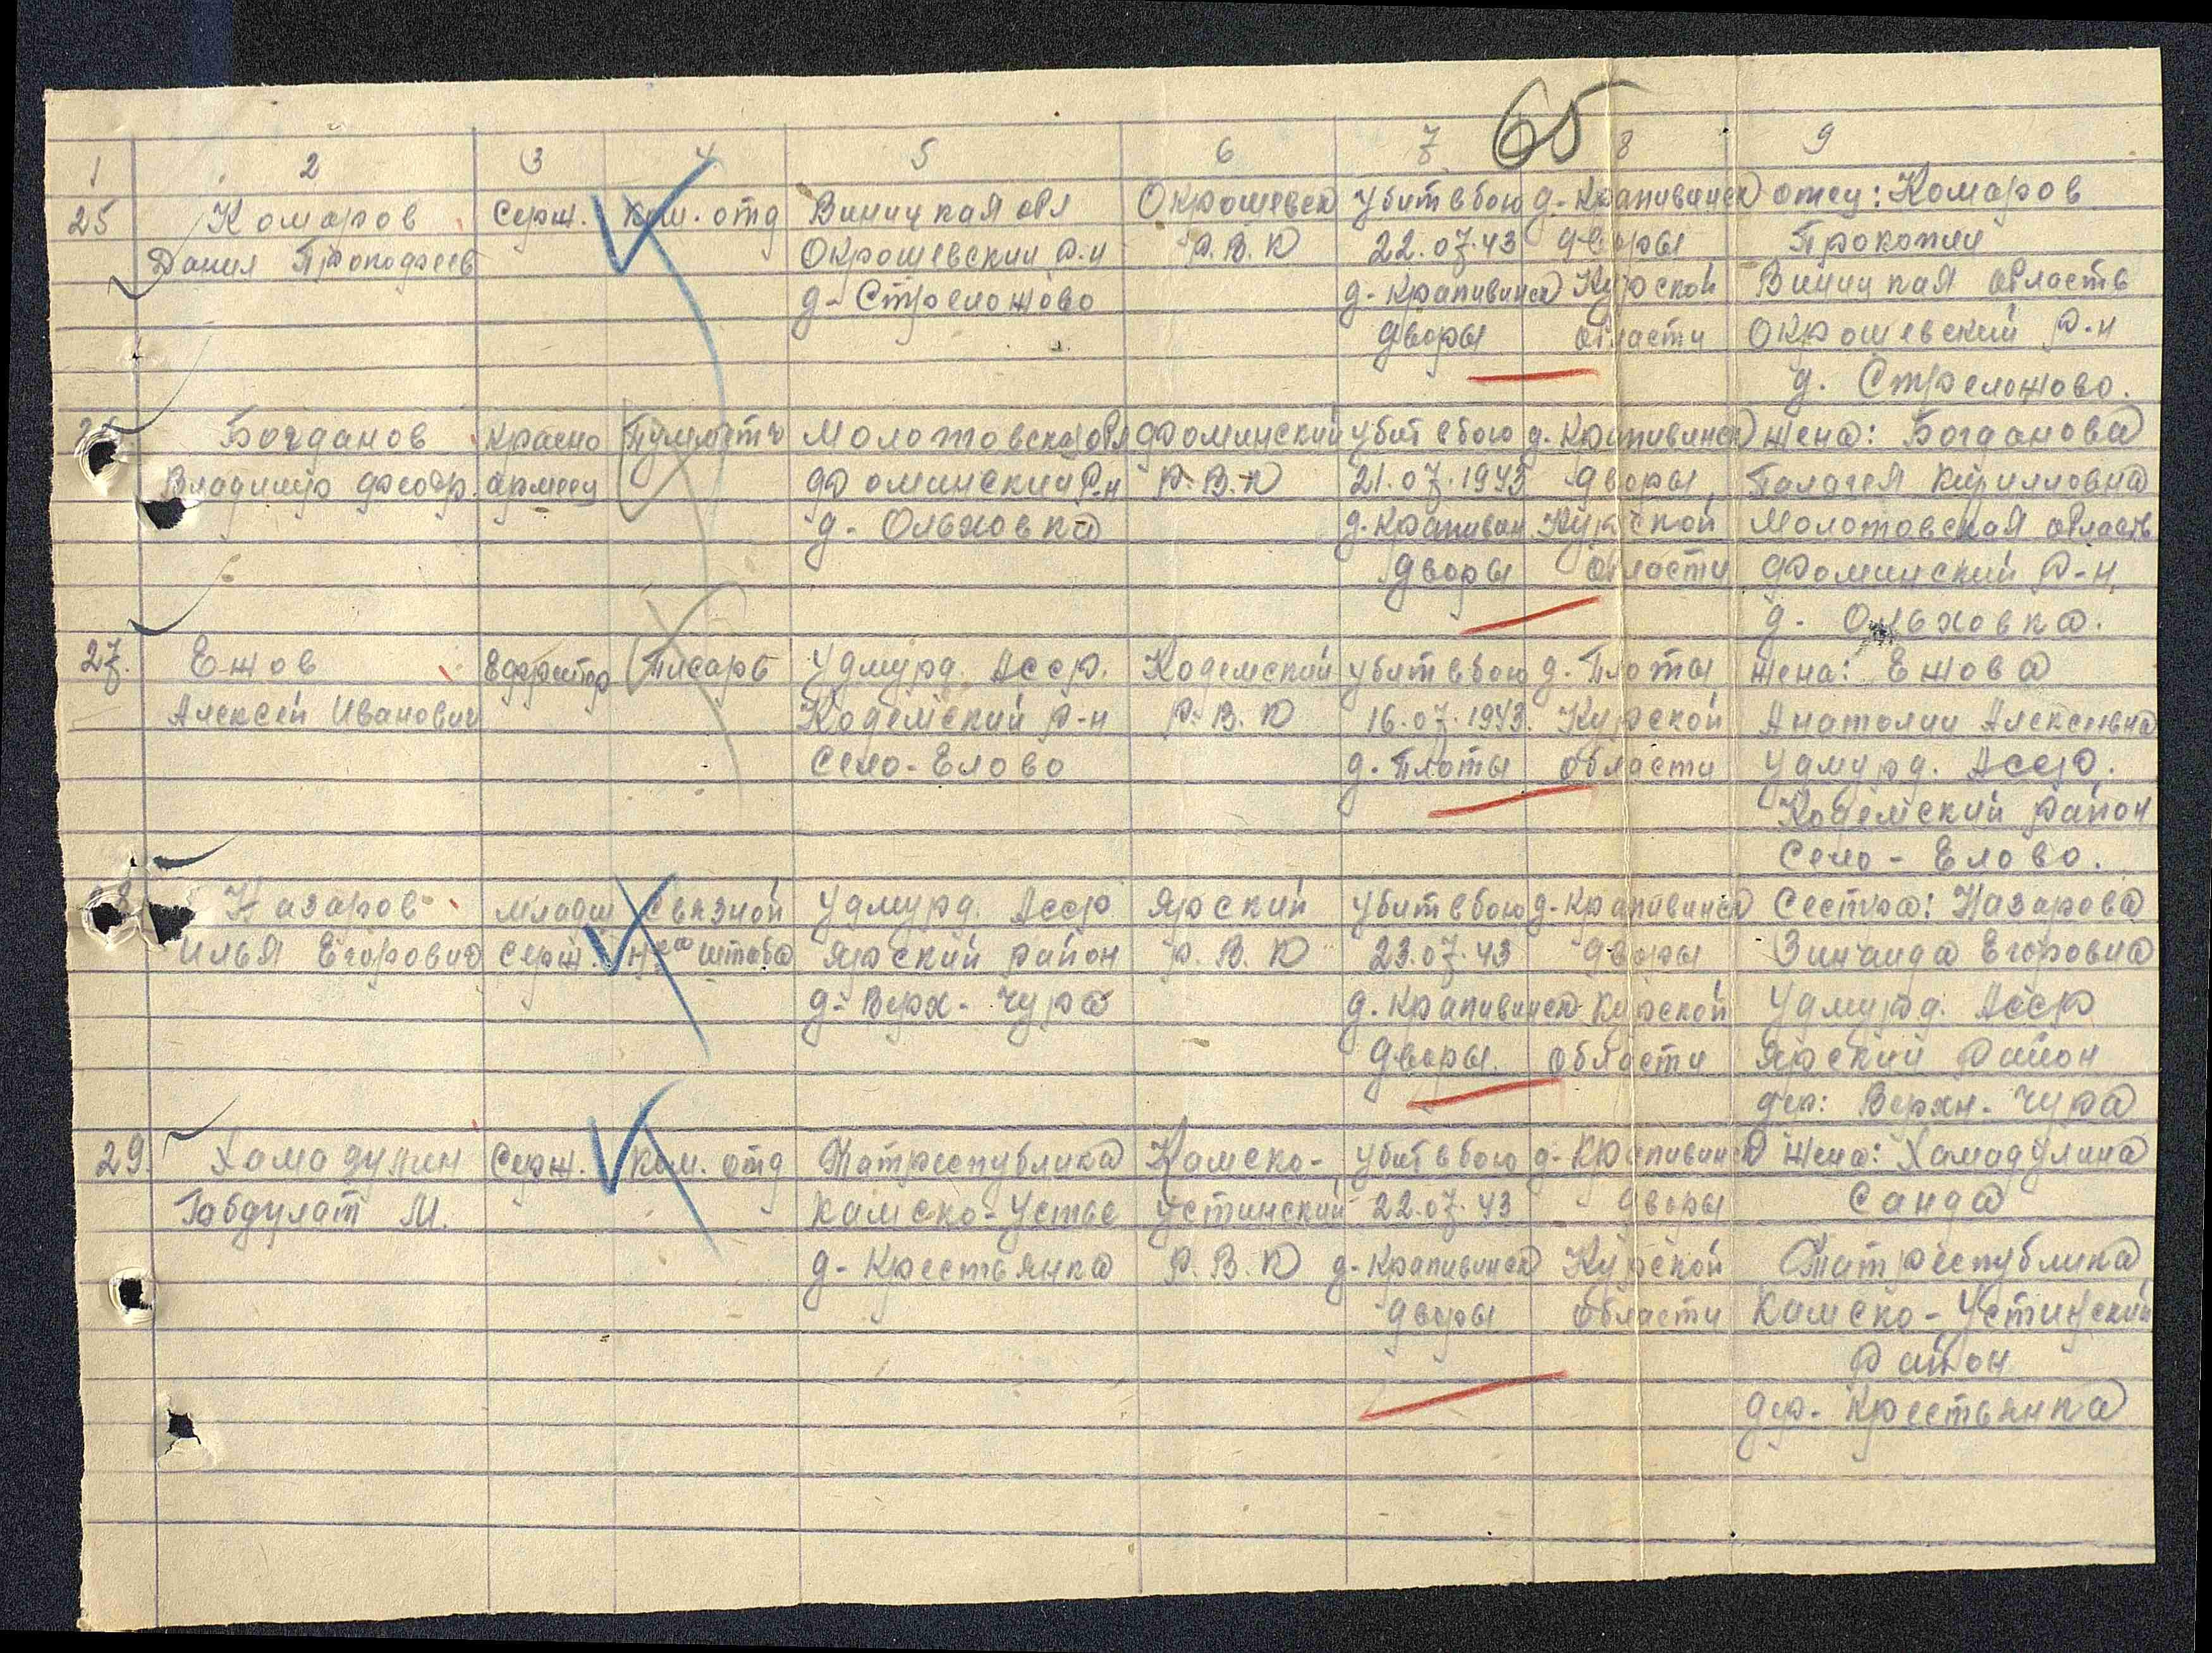 65
1 2 3 4 5 6 7 8 9
25 Комаров Серж. Ком. отд Виницкая обл Окрошевск убит в бою д. Крапивинск отец: Комаров
Данил Прокофеев Окрошевский р-н Р.В.К 22.07.43 дворы Прокопий
д- Стреложово д- Крапивинск Курской Виницкая область
дворы области Окрошевский р-н
д. Стреложово.
Богданов Красно Пулеметч Молотовская обл Фоминский убит в бою д. Крапивинск жена: Богданова
Владимир Феодр. армеец Фоминский р-н Р.В.К 21.07.1943 дворы Палагея Кирилловна
д- Ольховка д. Крапивин Курской Молотовская область
дворы области Фоминский р-н,
д- Ольховка.
27. Ежов Ефрейтор Писарь Удмурд. Асср. Кодемский убит в бою д. Плоты жена: Ежова
Алексей Иванович Кодемский р-н Р.В.К 16.07.1943. Курской Анатолии Алексеевна
Село-Елово д. Плоты области Удмурд. Асср.
Кодемский район
Село-Елово.
28 Назаров Младш Связной Удмурд. Асср Ярский убит в бою д- Крапивинск Сестра: Назарова
Илья Егорович Серж. Н-ка штаба Ярский район Р.В.К 23.07.43 дворы Зинаида Егоровна
д- Верх- Чура д. Крапивинск Курской Удмурд. Асср
дворы. области Ярский район
дер: Верхн- Чура
29. Хамадулин Серж. Ком. отд Татреспублика Камско- убит в бою д- Крапивинск жена: Хамадулина
Габдулат М. Камско-Устье Устинский 22.07.43 дворы Саида
д- Крестьянка Р.В.К д- Крапивинск Курской Татреспублика
дворы области Камско-Устинский
район
дер- Крестьянка